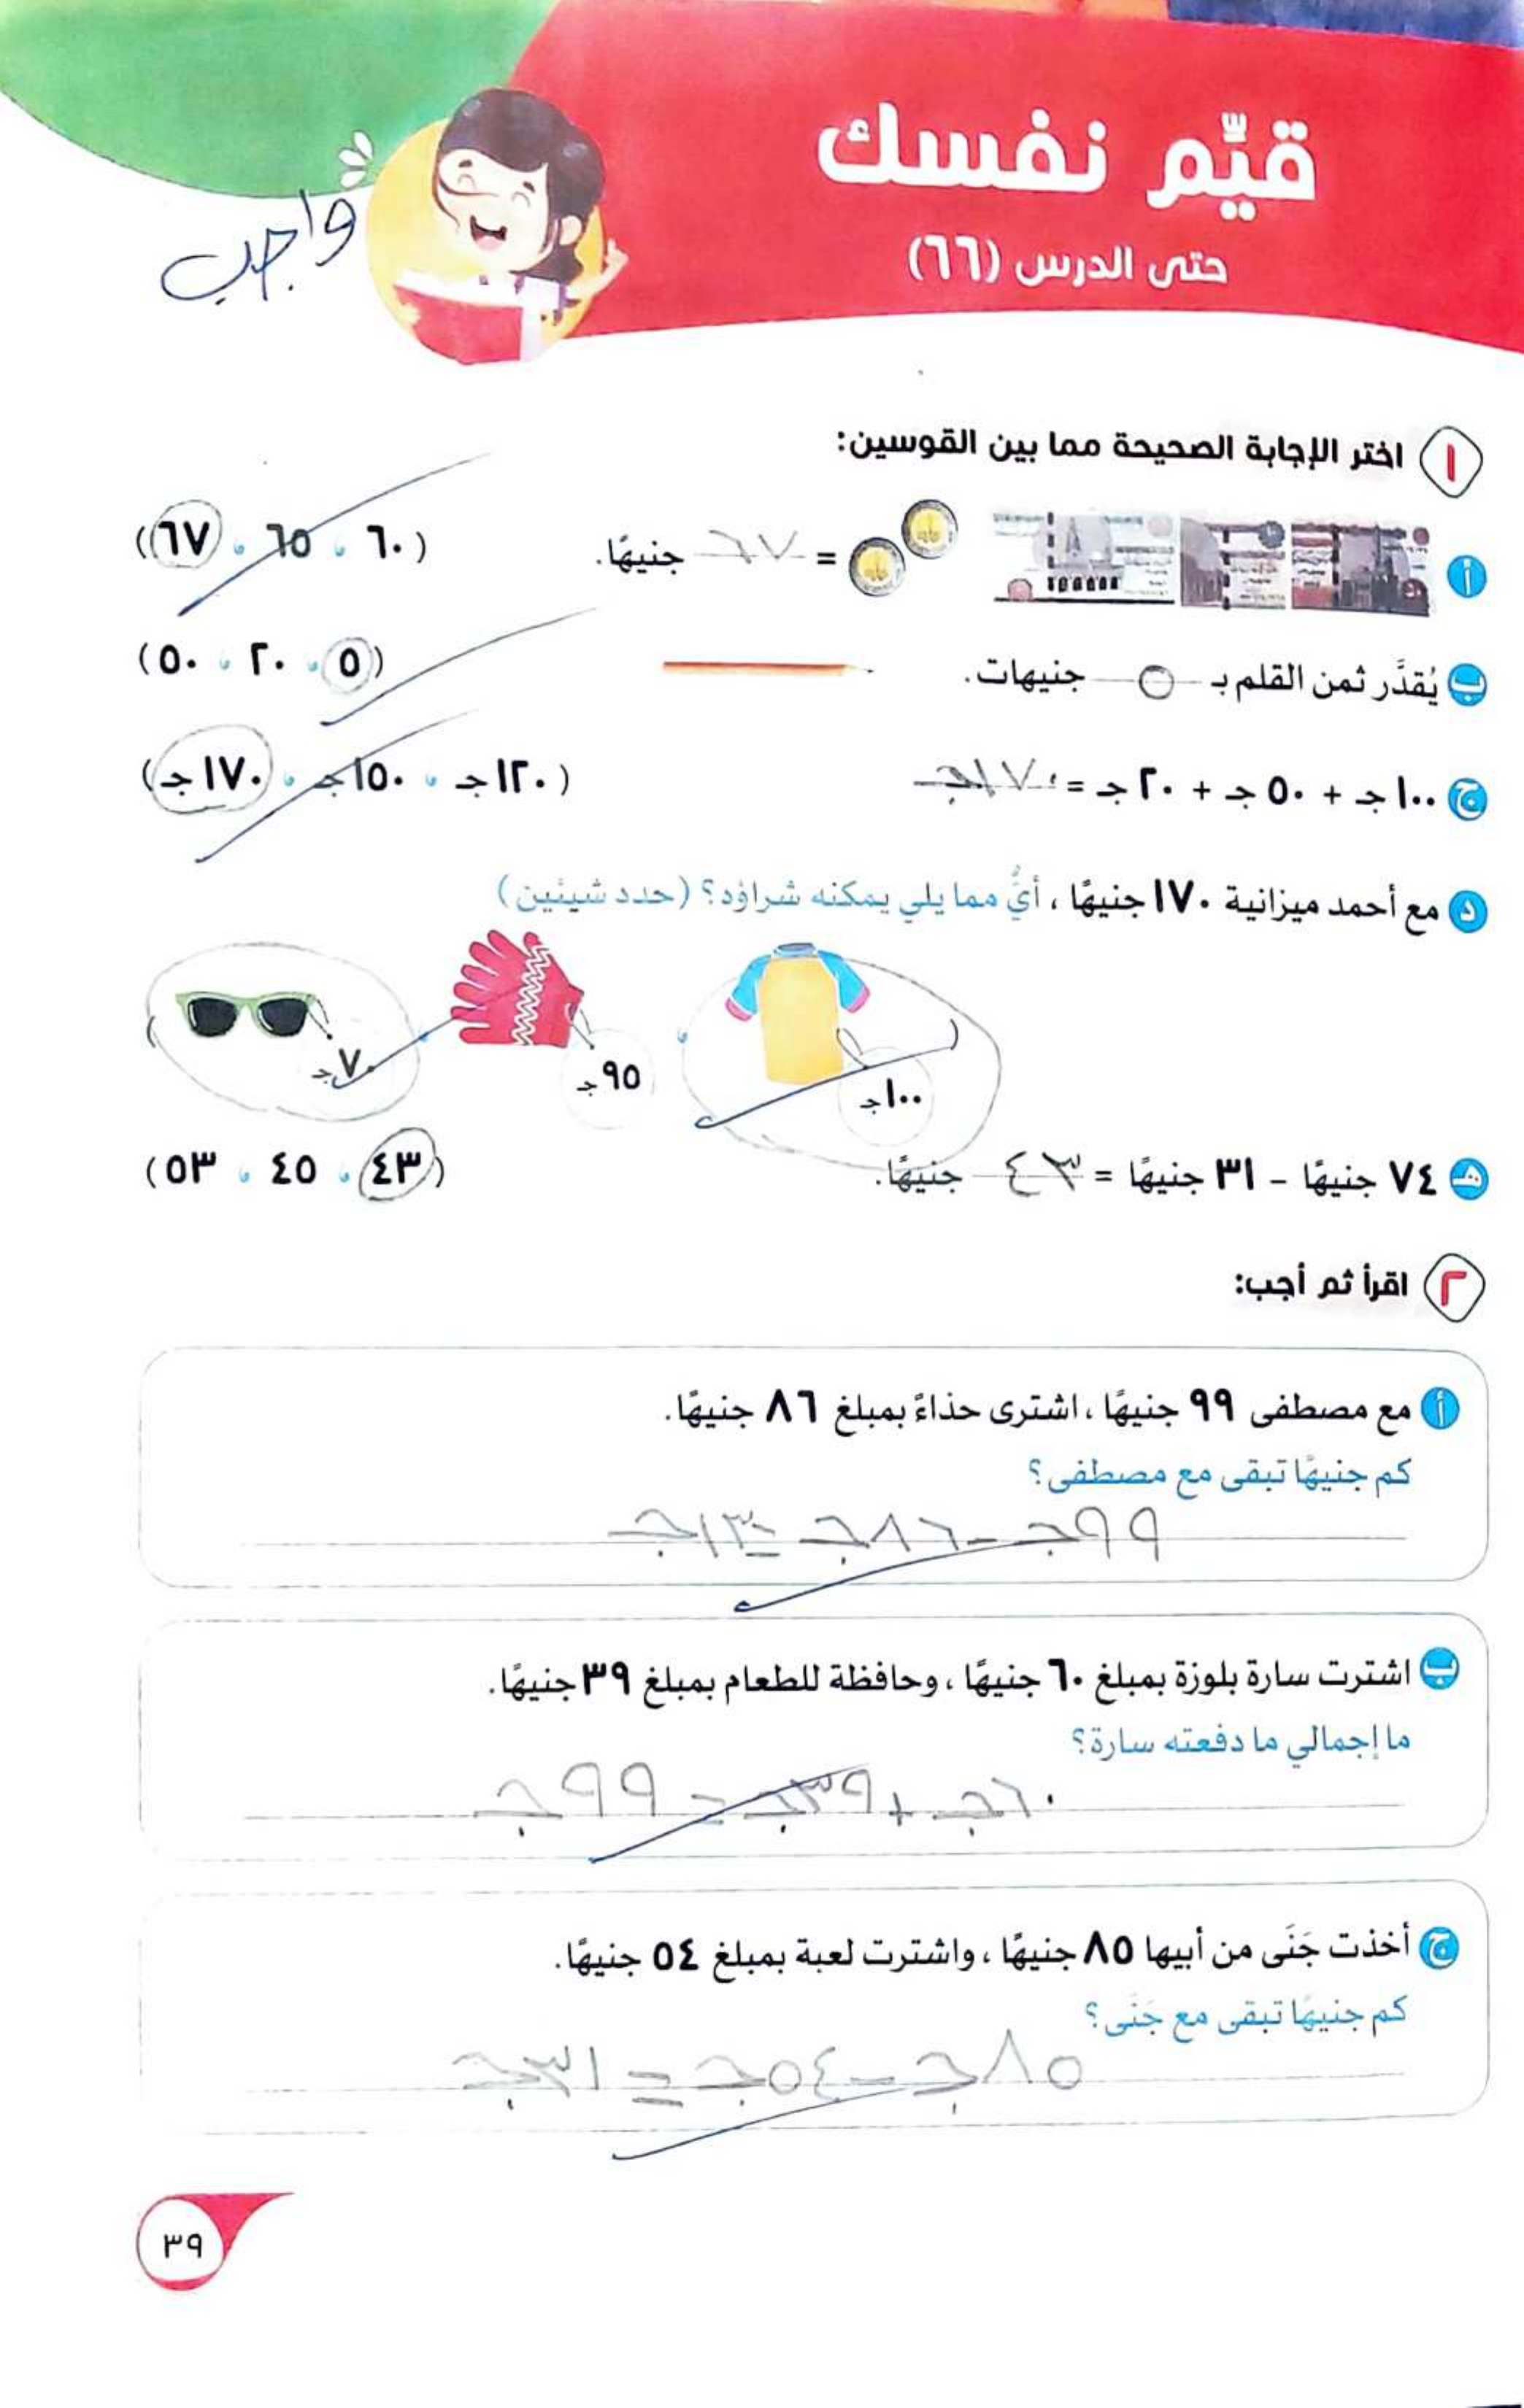 قيِّم نفسك
حتى الدرس (٦٦)
واجب
١ اختر الإجابة الصحيحة مما بين القوسين:
أ = ٦٧ جنيهًا. (٦٠ ، ٦٥ ، ٦٧)
ب يُقدَّر ثمن القلم بـ ٥ جنيهات. (٥ ، ٢٠ ، ٥٠)
ج ١٠٠ جـ + ٥٠ جـ + ٢٠ جـ = ١٧٠ جـ (١٢٠ جـ ، ١٥٠ جـ ، ١٧٠ جـ)
د مع أحمد ميزانية ١٧٠ جنيهًا ، أيٌّ مما يلي يمكنه شراؤه؟ (حدد شيئين)
( ١٠٠ جـ ، ٩٥ جـ ، ٧٠ جـ )
هـ ٧٤ جنيهًا - ٣١ جنيهًا = ٤٣ جنيهًا. (٤٣ ، ٤٥ ، ٥٣)
٢ اقرأ ثم أجب:
أ مع مصطفى ٩٩ جنيهًا ، اشترى حذاءً بمبلغ ٨٦ جنيهًا.
كم جنيهًا تبقى مع مصطفى؟
٩٩ جـ - ٨٦ جـ = ١٣ جـ
ب اشترت سارة بلوزة بمبلغ ٦٠ جنيهًا ، وحافظة للطعام بمبلغ ٣٩ جنيهًا.
ما إجمالي ما دفعته سارة؟
٦٠ جـ + ٣٩ جـ = ٩٩ جـ
ج أخذت جَنَى من أبيها ٨٥ جنيهًا ، واشترت لعبة بمبلغ ٥٤ جنيهًا.
كم جنيهًا تبقى مع جَنَى؟
٨٥ جـ - ٥٤ جـ = ٣١ جـ
٣٩